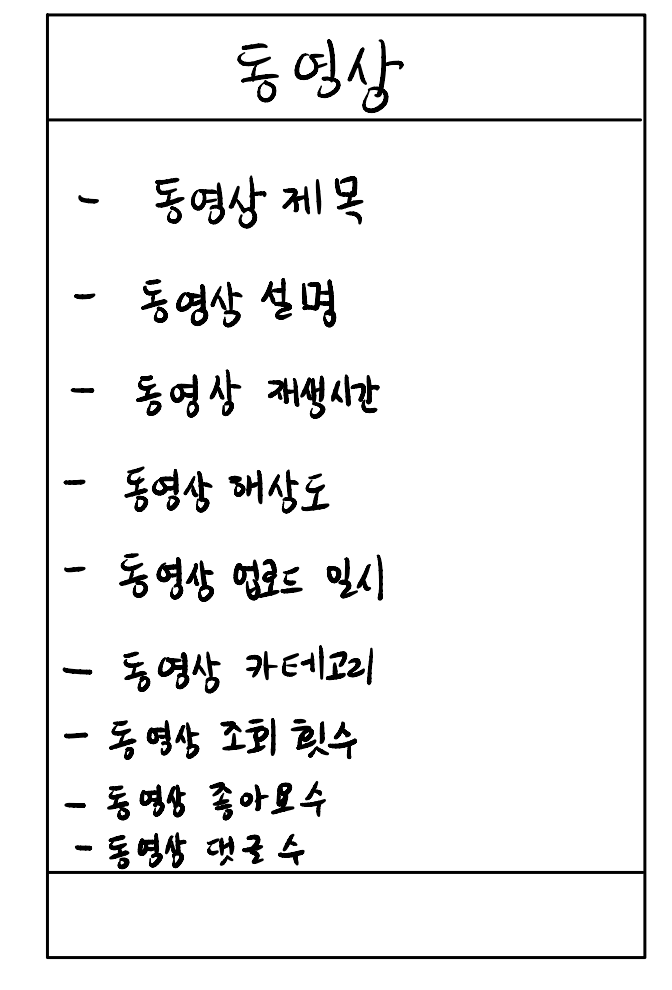 동영상
- 동영상 제목
- 동영상 설명
- 동영상 재생시간
- 동영상 해상도
- 동영상 업로드 일시
- 동영상 카테고리
- 동영상 조회 횟수
- 동영상 좋아요 수
- 동영상 댓글 수